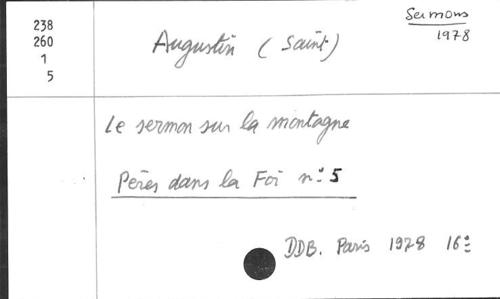 238
260
1
5
Augustin (Saint)
Sermons
1978
Le sermon sur la montagne
Pères dans la Foi n° 5
DDB. Paris 1978 16°